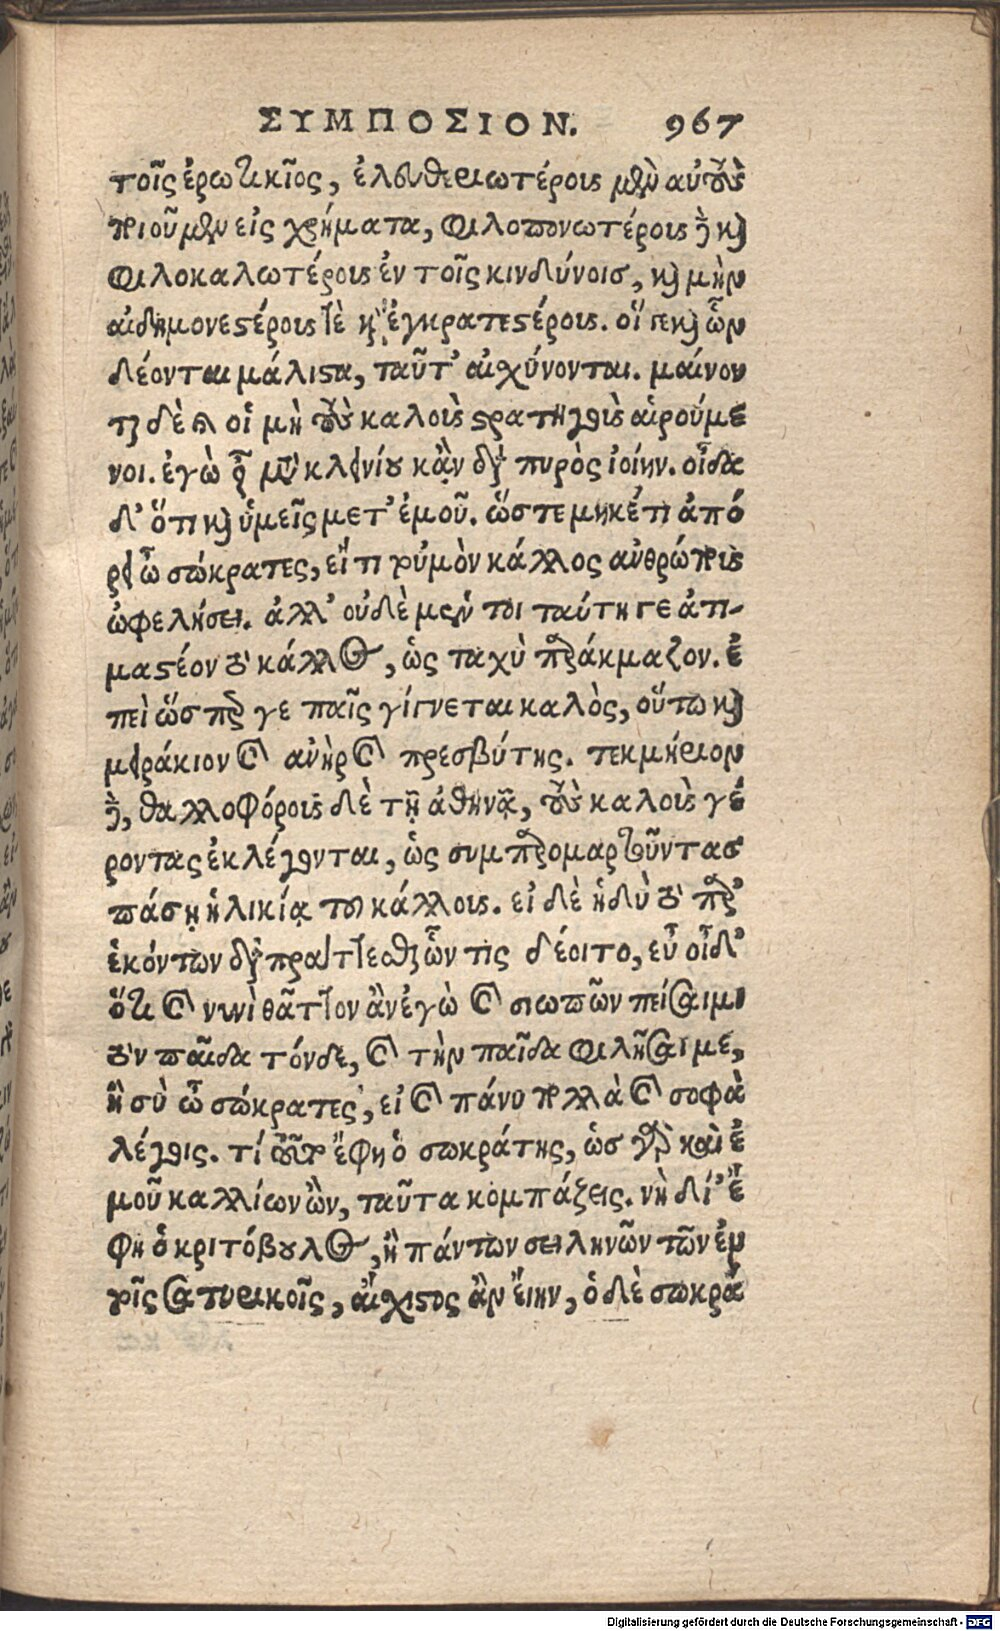 ΣΥΜΠΟΣΙΟΝ. 967
τοῖς ἐρωτικῖος, ἐλευθεριωτέρους μὲν αὐτοὺς
ποιοῦμεν εἰς χρήματα, φιλοπονωτέρους δὲ καὶ
φιλοκαλωτέρους ἐν τοῖς κινδύνοισ, καὶ μὴν
αἰδημονεστέρους τε καὶ ἐγκρατεστέρους. οἵ γε καὶ ὧν
δέονται μάλιστα, ταῦτ' αἰχύνονται. μαίνον
ται δὲ καὶ οἱ μὴ τοὺς καλοὺς στρατηγοὺς αἱρούμε
νοι. ἐγὼ γοῦν μετὰ κλεινίου κἂν διὰ πυρὸς ἰοίην. οἶδα
δ' ὅτι καὶ ὑμεῖς μετ' ἐμοῦ. ὥστε μηκέτι ἀπό
ρει ὦ σώκρατες, εἴ τι τοὐμὸν κάλλος ἀνθρώπους
ὠφελήσει. ἀλλ' οὐδὲ μέντοι ταύτη γε ἀτι-
μαστέον τὸ κάλλος, ὡς ταχὺ παρακμάζον. ἐ
πεὶ ὥσπερ γε παῖς γίγνεται καλὸς, οὕτω καὶ
μειράκιον καὶ ἀνὴρ καὶ πρεσβύτης. τεκμήριον
δὲ, θαλλοφόρους δὲ τῇ ἀθηνᾷ, τοὺς καλοὺς γέ
ροντας ἐκλέγονται, ὡς συμπαρομαρτοῦντασ
πάσῃ ἡλικίᾳ του κάλλους. εἰ δὲ ἡδὺ τὸ παρ'
ἑκόντων διαπράττεσθαι ὧν τις δέοιτο, εὖ οἶδ'
ὅτι καὶ νυνὶ θᾶττον ἂν ἐγὼ καὶ σιωπῶν πείσαιμι
τὸν παῖδα τόνδε, καὶ τὴν παῖδα φιλῆσαι με,
ἢ σὺ ὦ σώκρατες, εἰ καὶ πάνυ πολλὰ καὶ σοφὰ
λέγοις. τί τοῦτο ἔφη ὁ σωκράτης, ὡσ γὰρ καὶ ἐ
μοῦ καλλίων ὢν, ταῦτα κομπάζεις. νὴ δί' ἔ
φη ὁ κριτόβουλος, ἢ πάντων σειληνῶν τῶν ἐν
τοῖς σατυρικοῖς, αἴχιστος ἂν εἴην, ὁ δὲ σωκρά